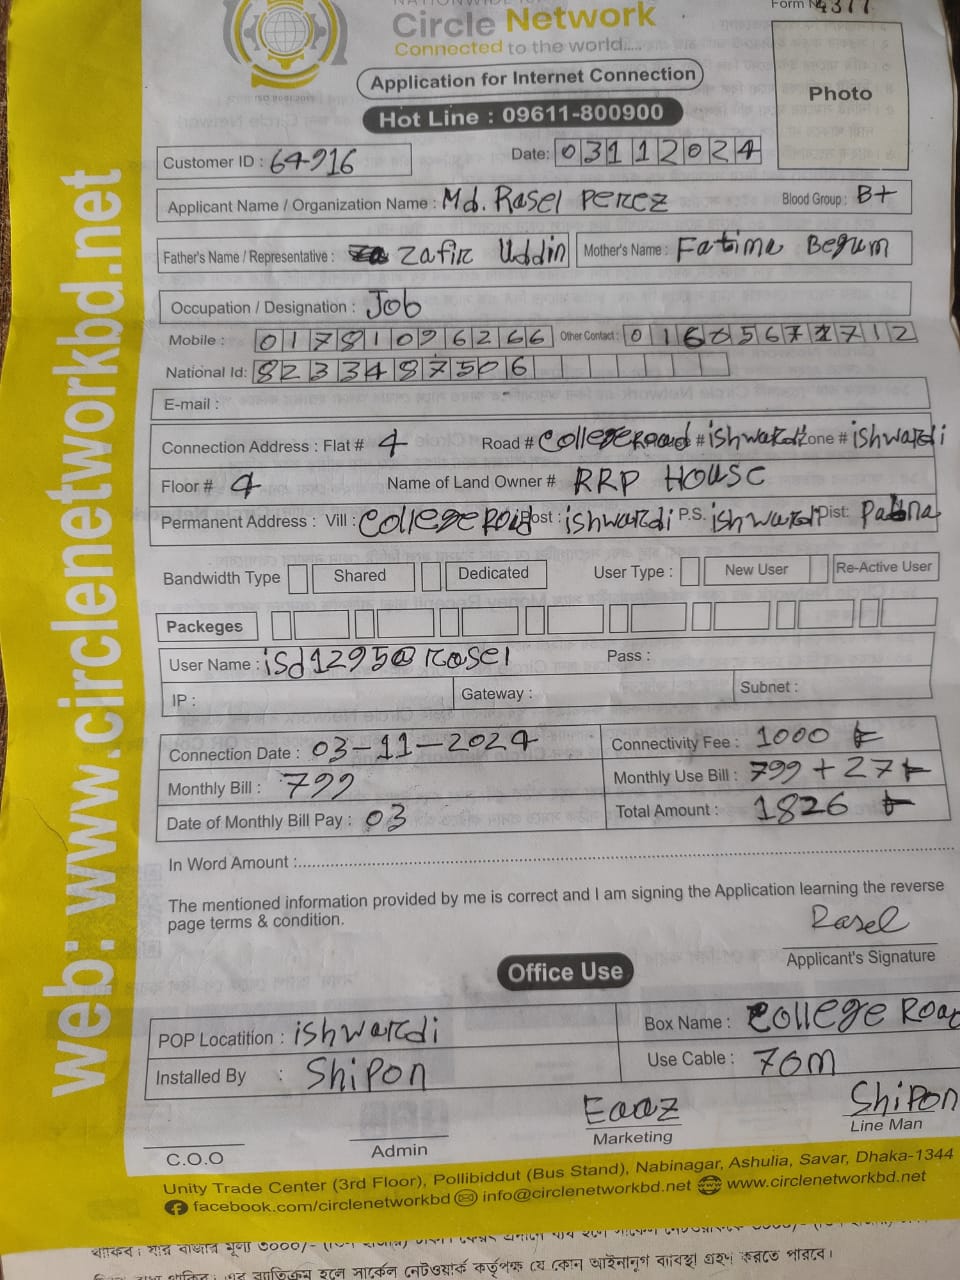 Form No 4377
Circle Network
Connected to the world.....
ISO 9001:2015
Application for Internet Connection
Photo
Hot Line : 09611-800900
Customer ID : 64-916 Date: 03112024
Applicant Name / Organization Name : Md. Rasel Perez Blood Group : B+
Father's Name / Representative : Zafir Uddin Mother's Name : Fatima Begum
Occupation / Designation : Job
Mobile : 01781096266 Other Contact :
National Id: 8233487506
E-mail :
Connection Address : Flat # 4 Road # College Road # ishwardi Zone # ishwardi
Floor # 4 Name of Land Owner # RRP House
Permanent Address : Vill : College Road Post : ishwardi P.S. ishwardi Dist: Pabna
Bandwidth Type Shared Dedicated User Type : New User Re-Active User
Packeges
User Name : isd1295@rasel Pass :
IP : Gateway : Subnet :
Connection Date : 03-11-2024 Connectivity Fee : 1000
Monthly Bill : 799 Monthly Use Bill : 799 + 27
Date of Monthly Bill Pay : 03 Total Amount : 1826
In Word Amount :
The mentioned information provided by me is correct and I am signing the Application learning the reverse
page terms & condition.
Rasel
Applicant's Signature
Office Use
POP Locatition : ishwardi Box Name : College Road
Installed By : Shipon Use Cable : 70m
Shipon
C.O.O Admin Marketing Line Man
Unity Trade Center (3rd Floor), Pollibiddut (Bus Stand), Nabinagar, Ashulia, Savar, Dhaka-1344
facebook.com/circlenetworkbd info@circlenetworkbd.net www.circlenetworkbd.net
web: www.circlenetworkbd.net
কর্তৃপক্ষ যে কোন আইনানুগ ব্যবস্থা গ্রহণ করতে পারবে।